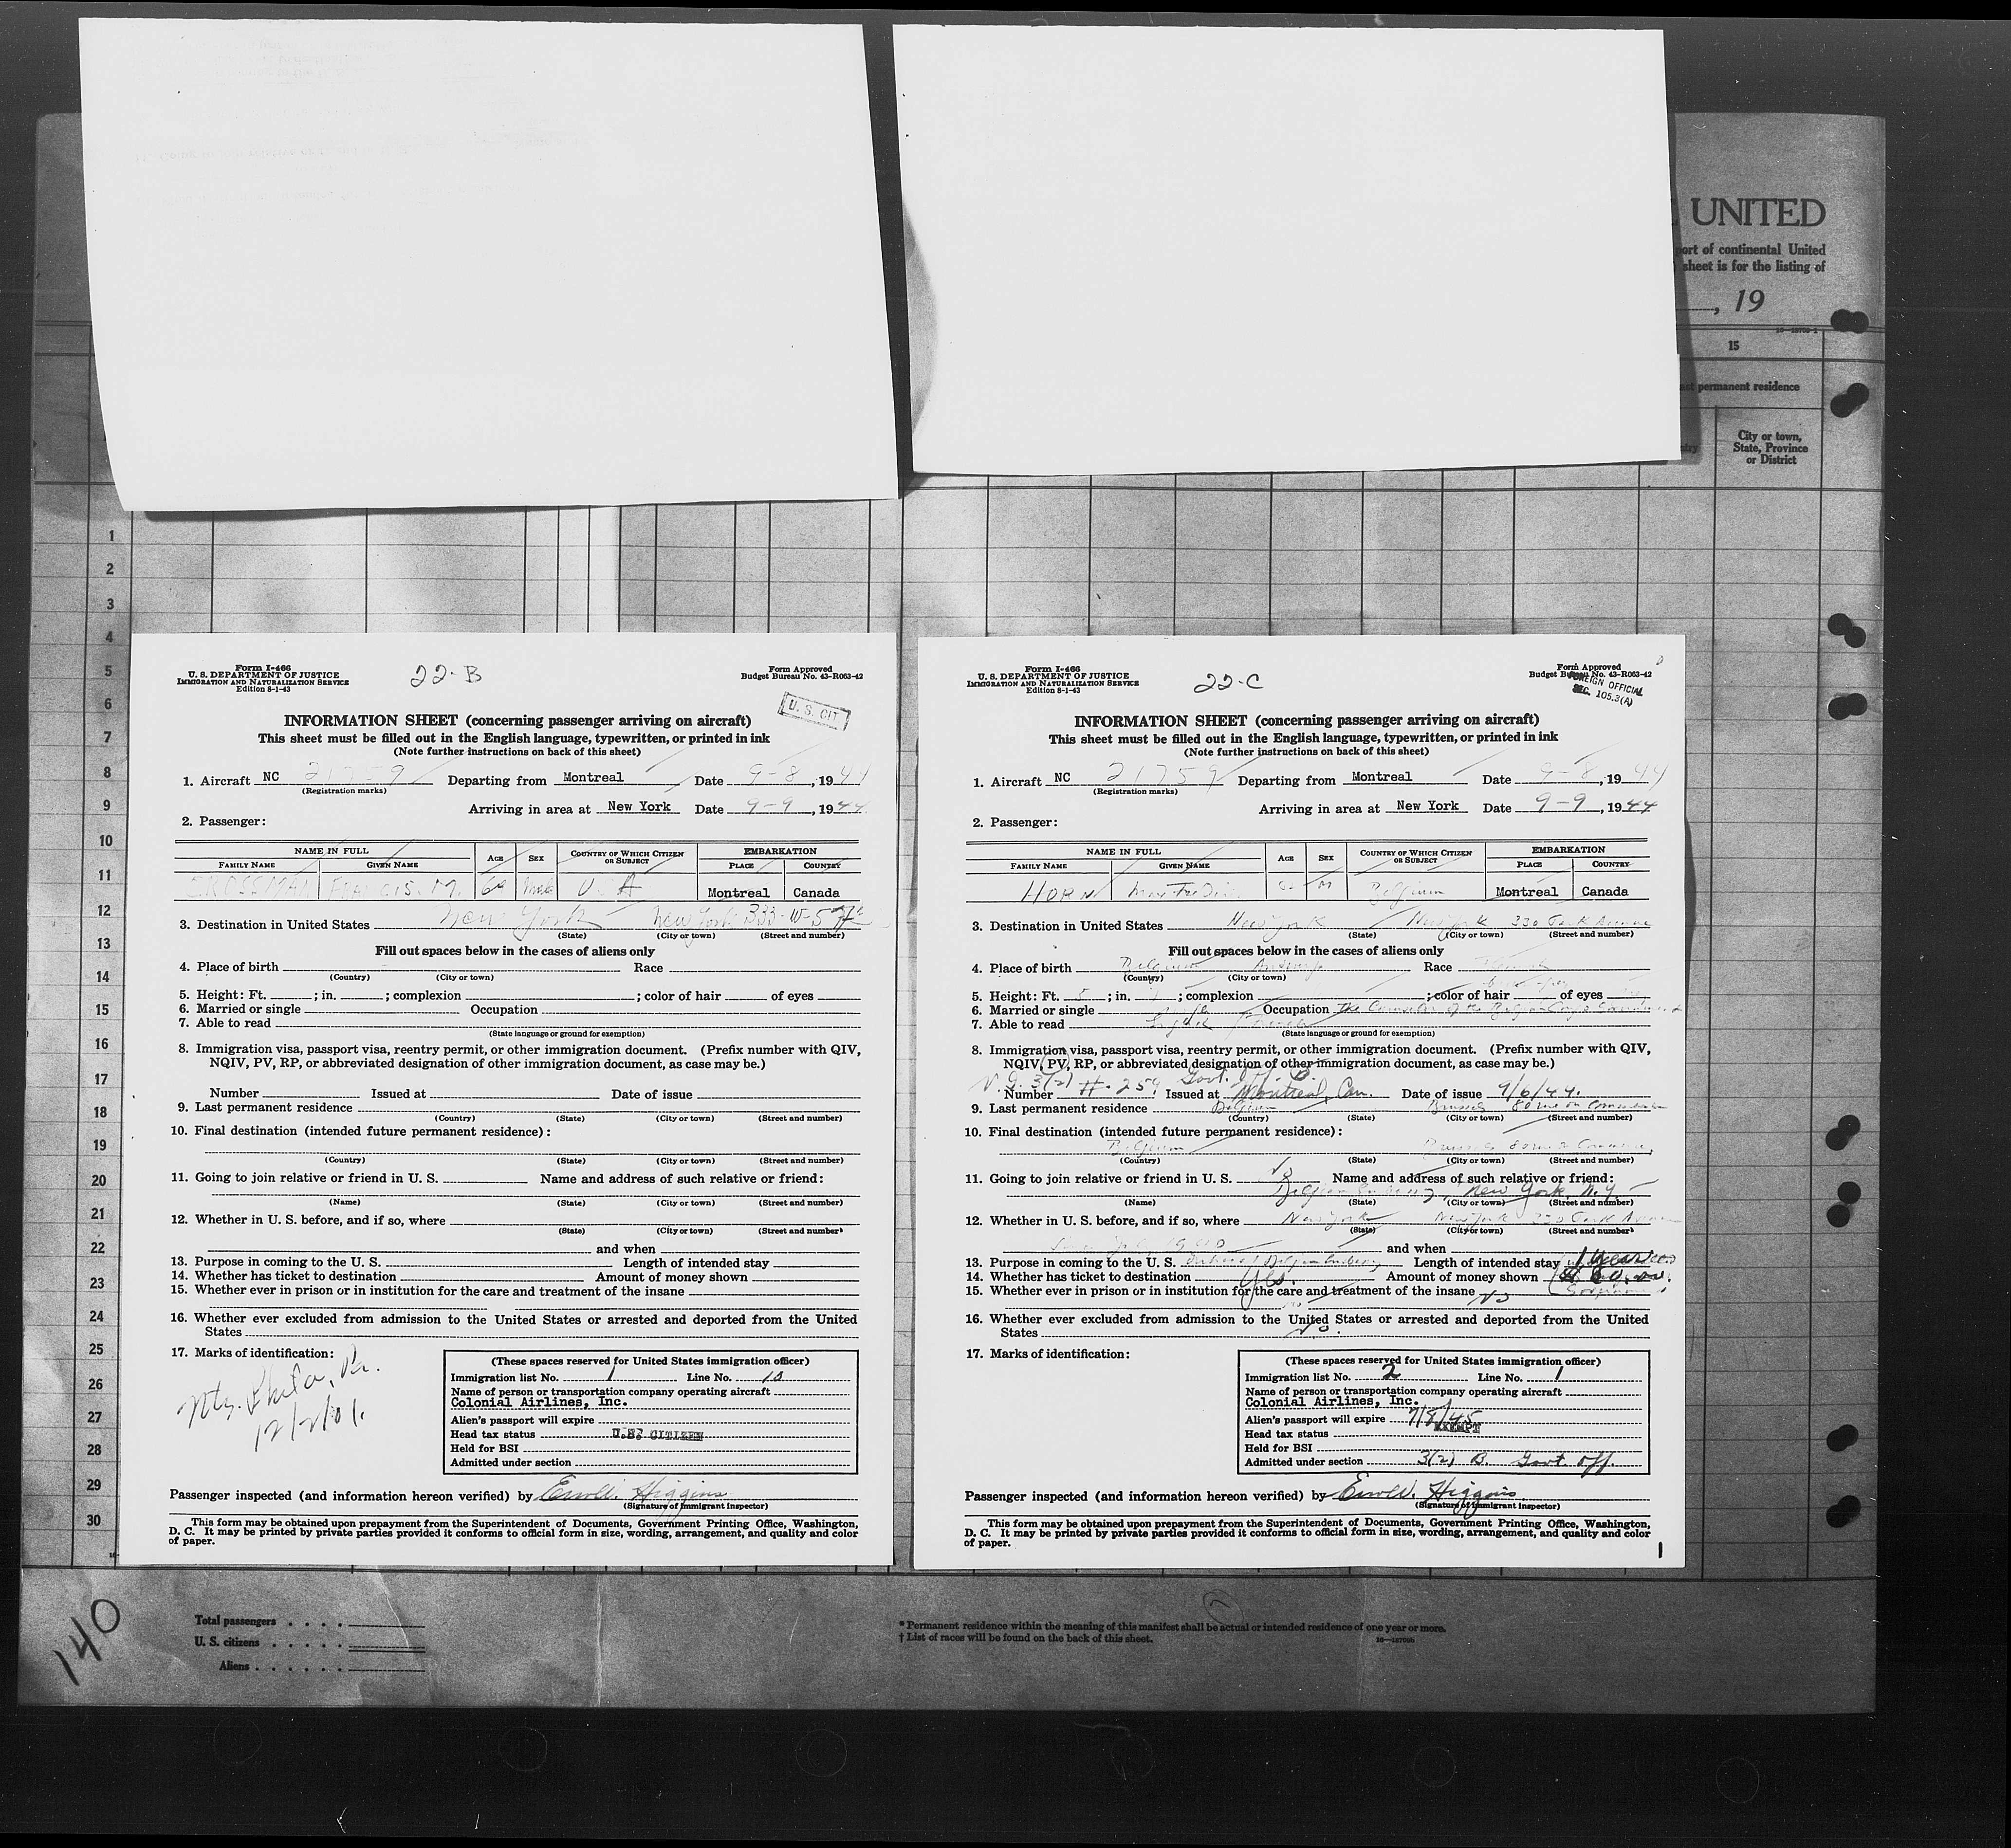 UNITED
port of continental United
sheet is for the listing of
, 19
15
permanent residence
City or town,
State, Province
or District
1
2
3
4
5
6
7
8
9
10
11
12
13
14
15
16
17
18
19
20
21
22
23
24
25
26
27
28
29
30
Form I-466
U. S. DEPARTMENT OF JUSTICE
IMMIGRATION AND NATURALIZATION SERVICE
Edition 8-1-43
22-B
Form Approved
Budget Bureau No. 43-R063-42
U. S. CIT
INFORMATION SHEET (concerning passenger arriving on aircraft)
This sheet must be filled out in the English language, typewritten, or printed in ink
(Note further instructions on back of this sheet)
1. Aircraft NC 21759 Departing from Montreal Date 9-8, 1944
(Registration marks)
Arriving in area at New York Date 9-9, 1944
2. Passenger:
NAME IN FULL AGE SEX COUNTRY OF WHICH CITIZEN OR SUBJECT EMBARKATION
FAMILY NAME GIVEN NAME PLACE COUNTRY
Francis. M. Male U S A Montreal Canada
3. Destination in United States New York New York 333-W-57th
(State) (City or town) (Street and number)
Fill out spaces below in the cases of aliens only
4. Place of birth Race
(Country) (City or town)
5. Height: Ft. ; in. ; complexion ; color of hair of eyes
6. Married or single Occupation
7. Able to read
(State language or ground for exemption)
8. Immigration visa, passport visa, reentry permit, or other immigration document. (Prefix number with QIV,
NQIV, PV, RP, or abbreviated designation of other immigration document, as case may be.)
Number Issued at Date of issue
9. Last permanent residence
(Country) (State) (City or town) (Street and number)
10. Final destination (intended future permanent residence):
(Country) (State) (City or town) (Street and number)
11. Going to join relative or friend in U. S. Name and address of such relative or friend:
(Name) (State) (City or town) (Street and number)
12. Whether in U. S. before, and if so, where
(State) (City or town) (Street and number)
and when
13. Purpose in coming to the U. S. Length of intended stay
14. Whether has ticket to destination Amount of money shown
15. Whether ever in prison or in institution for the care and treatment of the insane
16. Whether ever excluded from admission to the United States or arrested and deported from the United
States
17. Marks of identification:
Phila, Pa.
(These spaces reserved for United States immigration officer)
Immigration list No. 1 Line No. 10
Name of person or transportation company operating aircraft
Colonial Airlines, Inc.
Alien's passport will expire
Head tax status U.S. CITIZEN
Held for BSI
Admitted under section
Passenger inspected (and information hereon verified) by Higgins
(Signature of Immigrant Inspector)
This form may be obtained upon prepayment from the Superintendent of Documents, Government Printing Office, Washington,
D. C. It may be printed by private parties provided it conforms to official form in size, wording, arrangement, and quality and color
of paper.
Form I-466
U. S. DEPARTMENT OF JUSTICE
IMMIGRATION AND NATURALIZATION SERVICE
Edition 8-1-43
22-C
Form Approved
Budget Bureau No. 43-R063-42
FOREIGN OFFICIAL
SEC. 105.3(A)
INFORMATION SHEET (concerning passenger arriving on aircraft)
This sheet must be filled out in the English language, typewritten, or printed in ink
(Note further instructions on back of this sheet)
1. Aircraft NC 21759 Departing from Montreal Date 9-8, 1944
(Registration marks)
Arriving in area at New York Date 9-9, 1944
2. Passenger:
NAME IN FULL AGE SEX COUNTRY OF WHICH CITIZEN OR SUBJECT EMBARKATION
FAMILY NAME GIVEN NAME PLACE COUNTRY
HORN M Belgium Montreal Canada
3. Destination in United States New York New York 330 Park Avenue
(State) (City or town) (Street and number)
Fill out spaces below in the cases of aliens only
4. Place of birth Belgium Race
(Country) (City or town)
5. Height: Ft. 5 ; in. ; complexion ; color of hair of eyes
6. Married or single Occupation
7. Able to read English French
(State language or ground for exemption)
8. Immigration visa, passport visa, reentry permit, or other immigration document. (Prefix number with QIV,
NQIV, PV, RP, or abbreviated designation of other immigration document, as case may be.)
3(2) Govt. Off.
Number # 259 Issued at Montreal, Can. Date of issue 9/6/44.
9. Last permanent residence Belgium Brussels
(Country) (State) (City or town) (Street and number)
10. Final destination (intended future permanent residence):
Belgium Brussels
(Country) (State) (City or town) (Street and number)
11. Going to join relative or friend in U. S. No Name and address of such relative or friend:
Belgian Embassy, New York, N.Y.
(Name) (State) (City or town) (Street and number)
12. Whether in U. S. before, and if so, where New York New York 330 Park Avenue
(State) (City or town) (Street and number)
1940 and when
13. Purpose in coming to the U. S. Belgian Embassy Length of intended stay 1 year
14. Whether has ticket to destination Yes. Amount of money shown
15. Whether ever in prison or in institution for the care and treatment of the insane No
16. Whether ever excluded from admission to the United States or arrested and deported from the United
States No.
17. Marks of identification:
(These spaces reserved for United States immigration officer)
Immigration list No. 2 Line No. 1
Name of person or transportation company operating aircraft
Colonial Airlines, Inc.
Alien's passport will expire 7/8/45
Head tax status EXEMPT
Held for BSI
Admitted under section 3(2) B. Govt. Off.
Passenger inspected (and information hereon verified) by Higgins
(Signature of Immigrant Inspector)
This form may be obtained upon prepayment from the Superintendent of Documents, Government Printing Office, Washington,
D. C. It may be printed by private parties provided it conforms to official form in size, wording, arrangement, and quality and color
of paper.
140
Total passengers
U. S. citizens
Aliens
* Permanent residence within the meaning of this manifest shall be actual or intended residence of one year or more.
† List of races will be found on the back of this sheet.